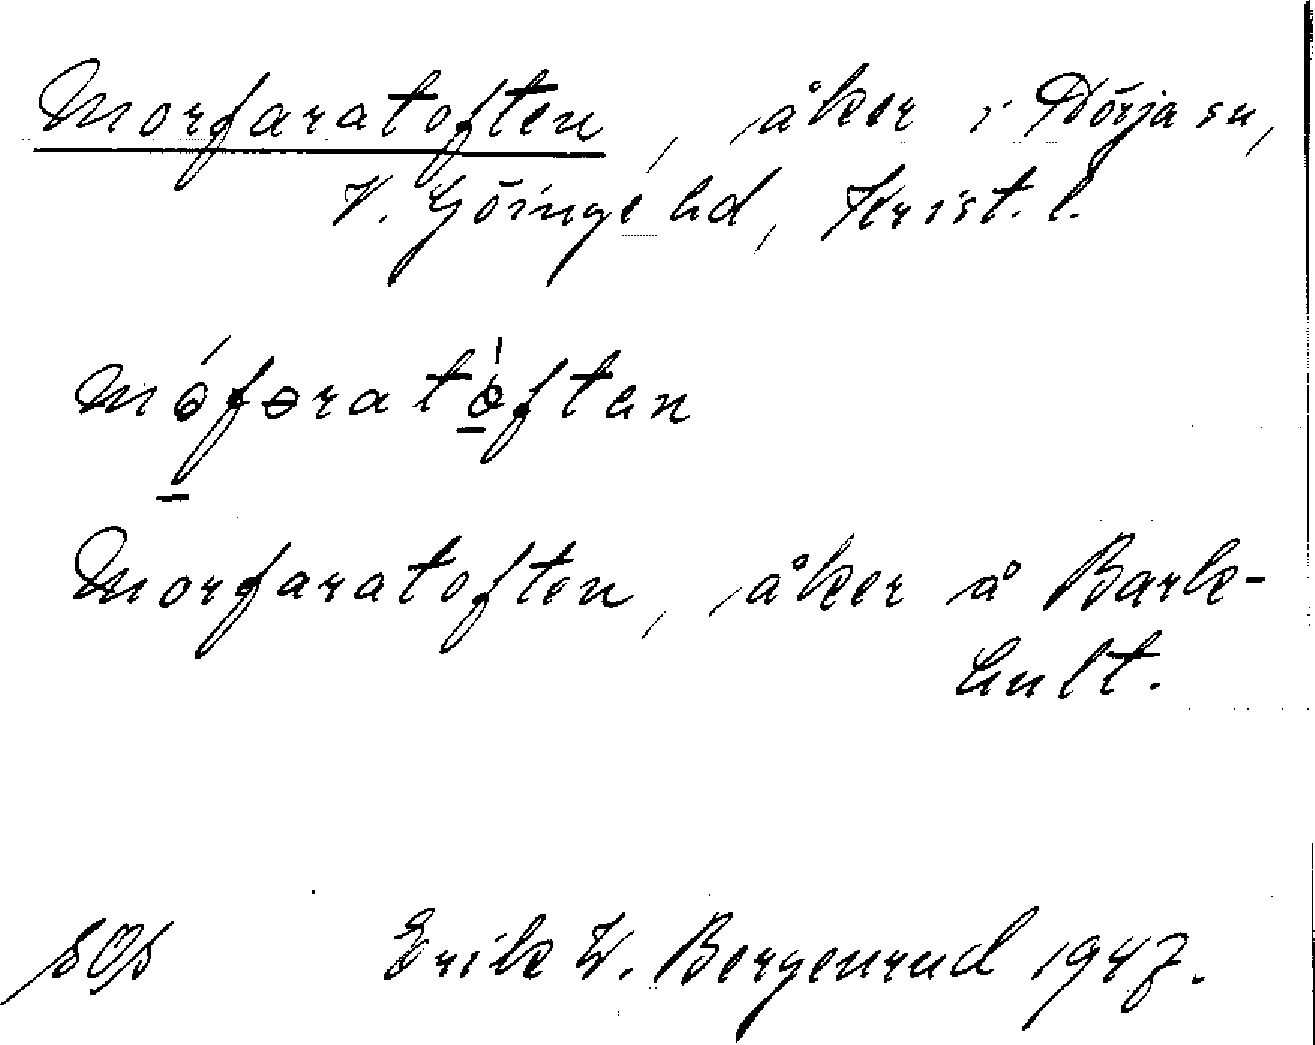 Morfaratoften, åker i Dörja sn,
V. Göinge hd, Krist. l.
móforatóften
Morfaratoften, åker å Bark-
hult.
Erik W. Bergenrud 1947.